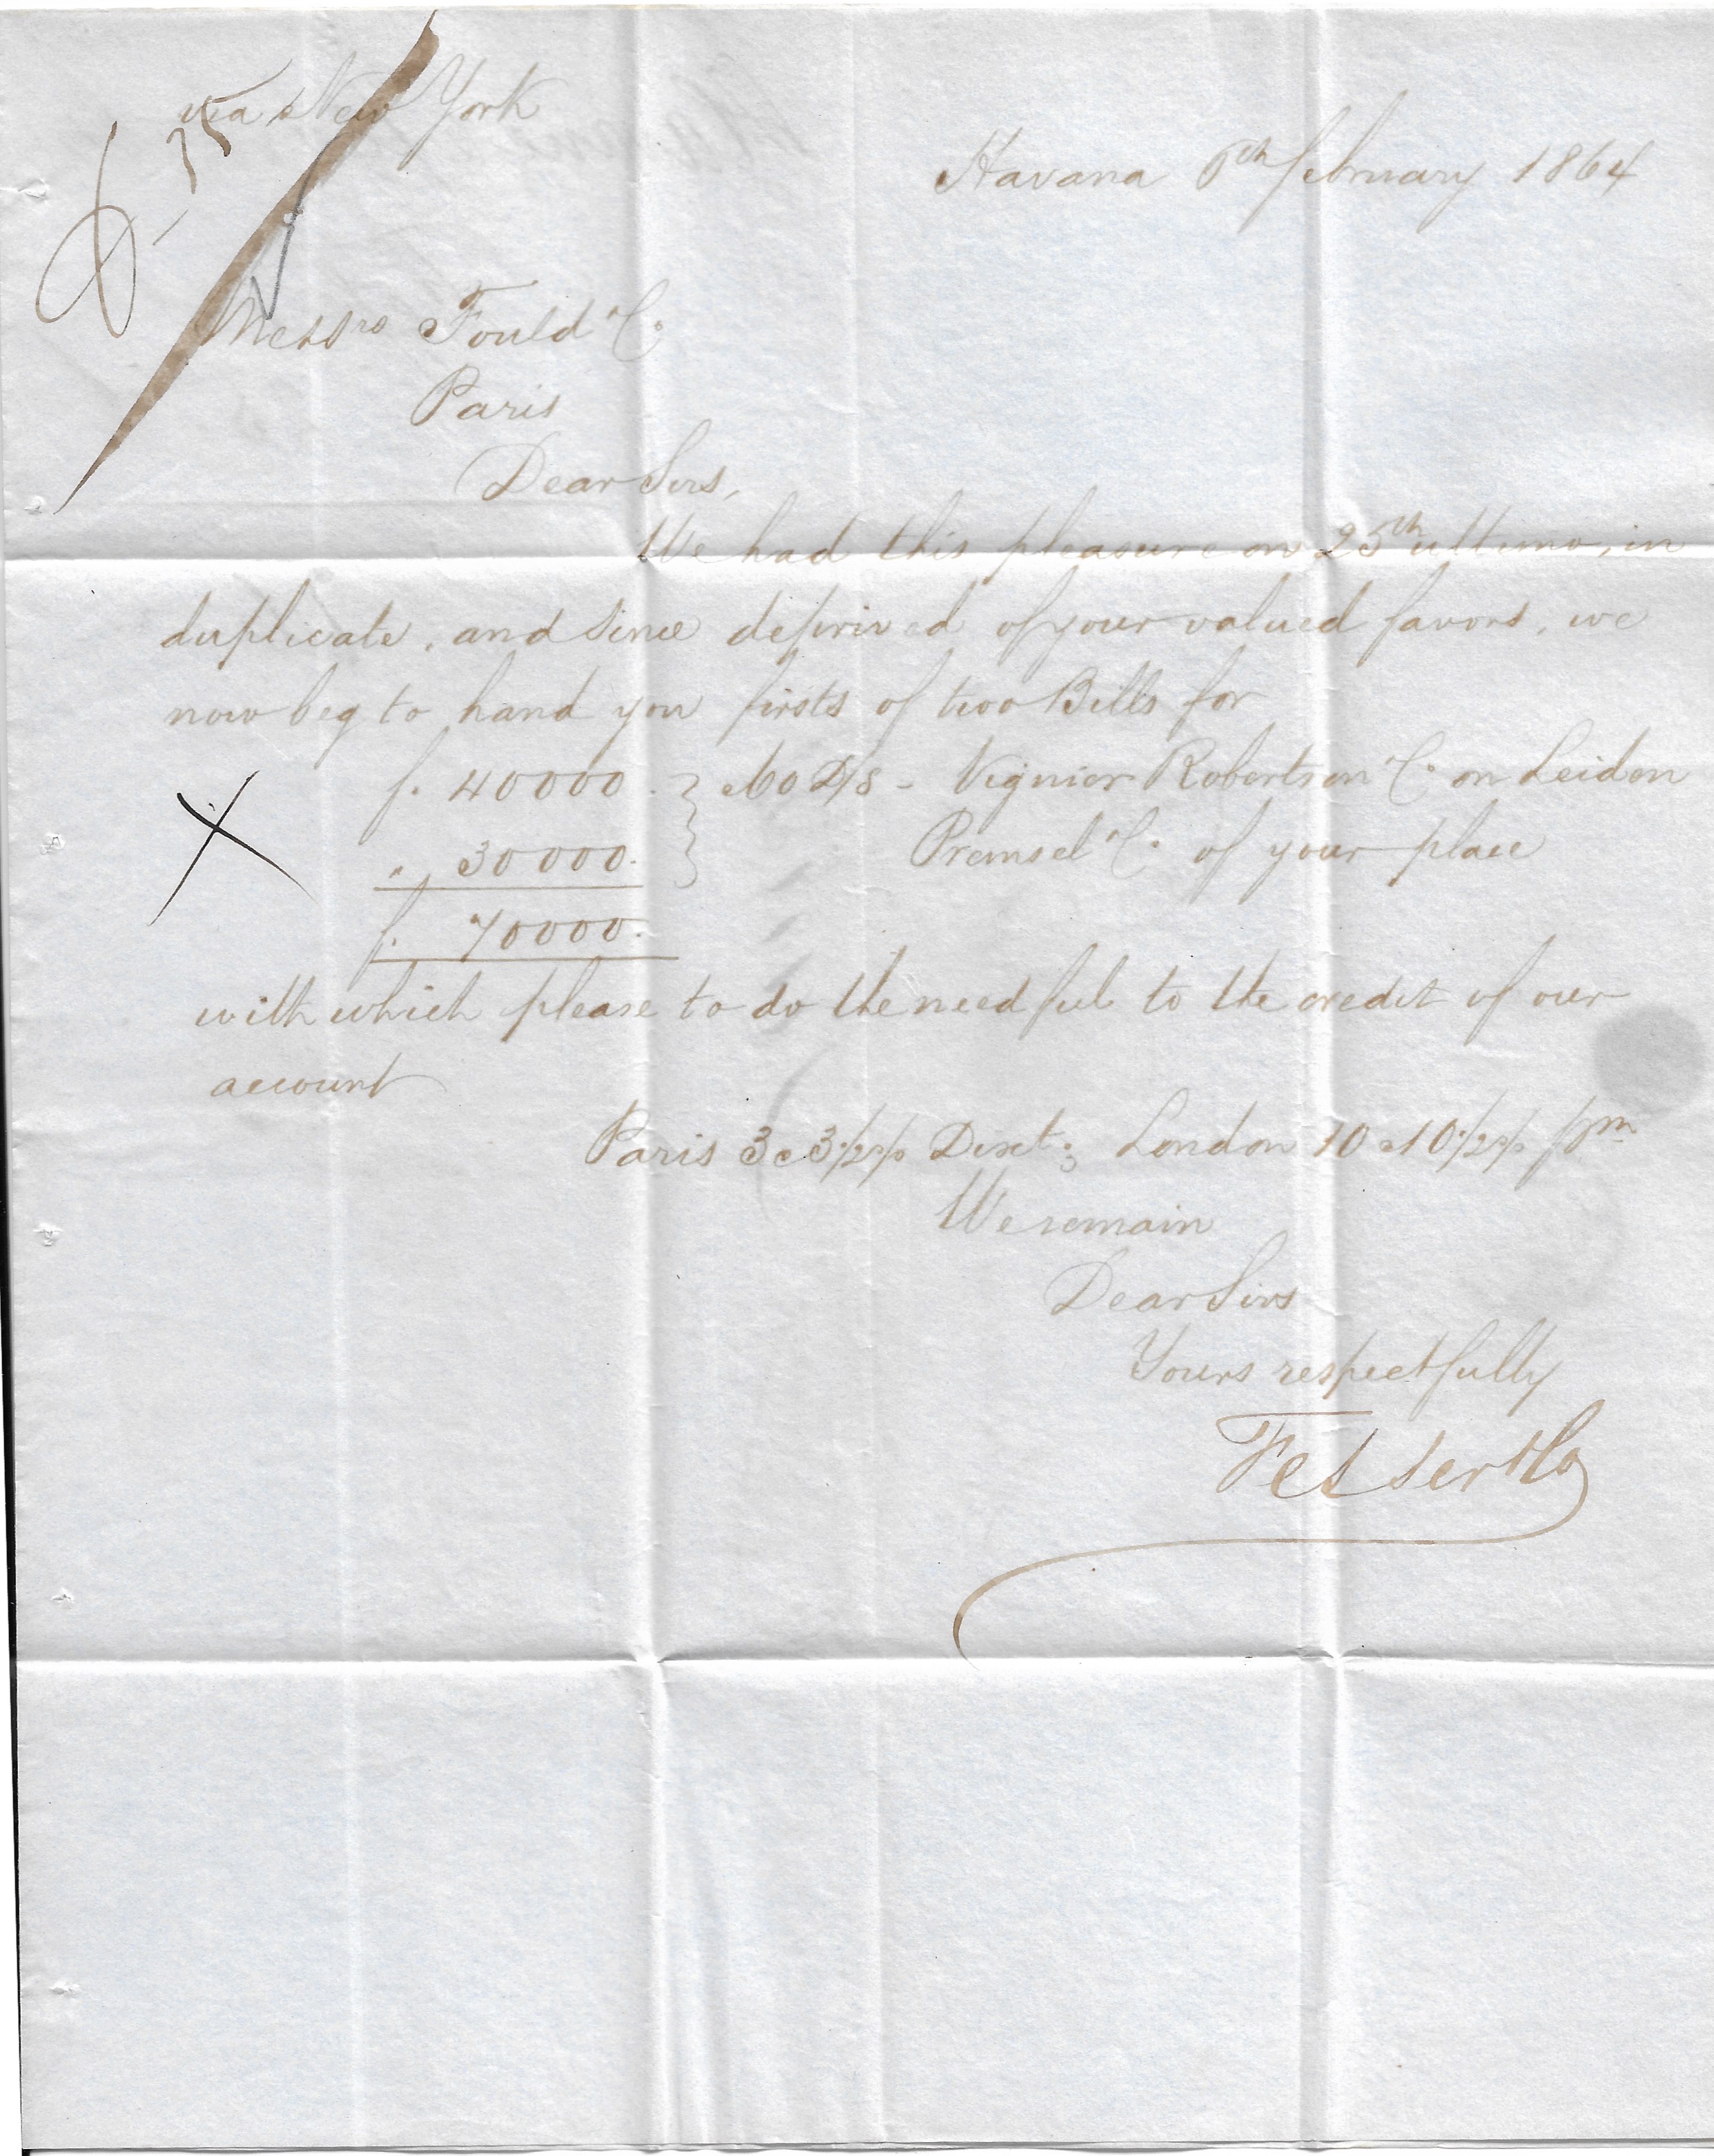 via New York
Havana 6th february 1864
Messrs Fould & C.
Paris
Dear Sirs,
We had this pleasure on 25th ultimo, in
duplicate, and since deprived of your valued favors, we
now beg to hand you firsts of two Bills for
f. 40000. } 60 D/s - Vignier Robertson & C. on Leiden
" 30000. } Premsel & C. of your place
f. 70000.
with which please to do the needful to the credit of our
account
Paris 3 a 3 1/2 % Disct; London 10 a 10 1/2 % pm
We remain
Dear Sirs
Yours respectfully
Fesser & Co